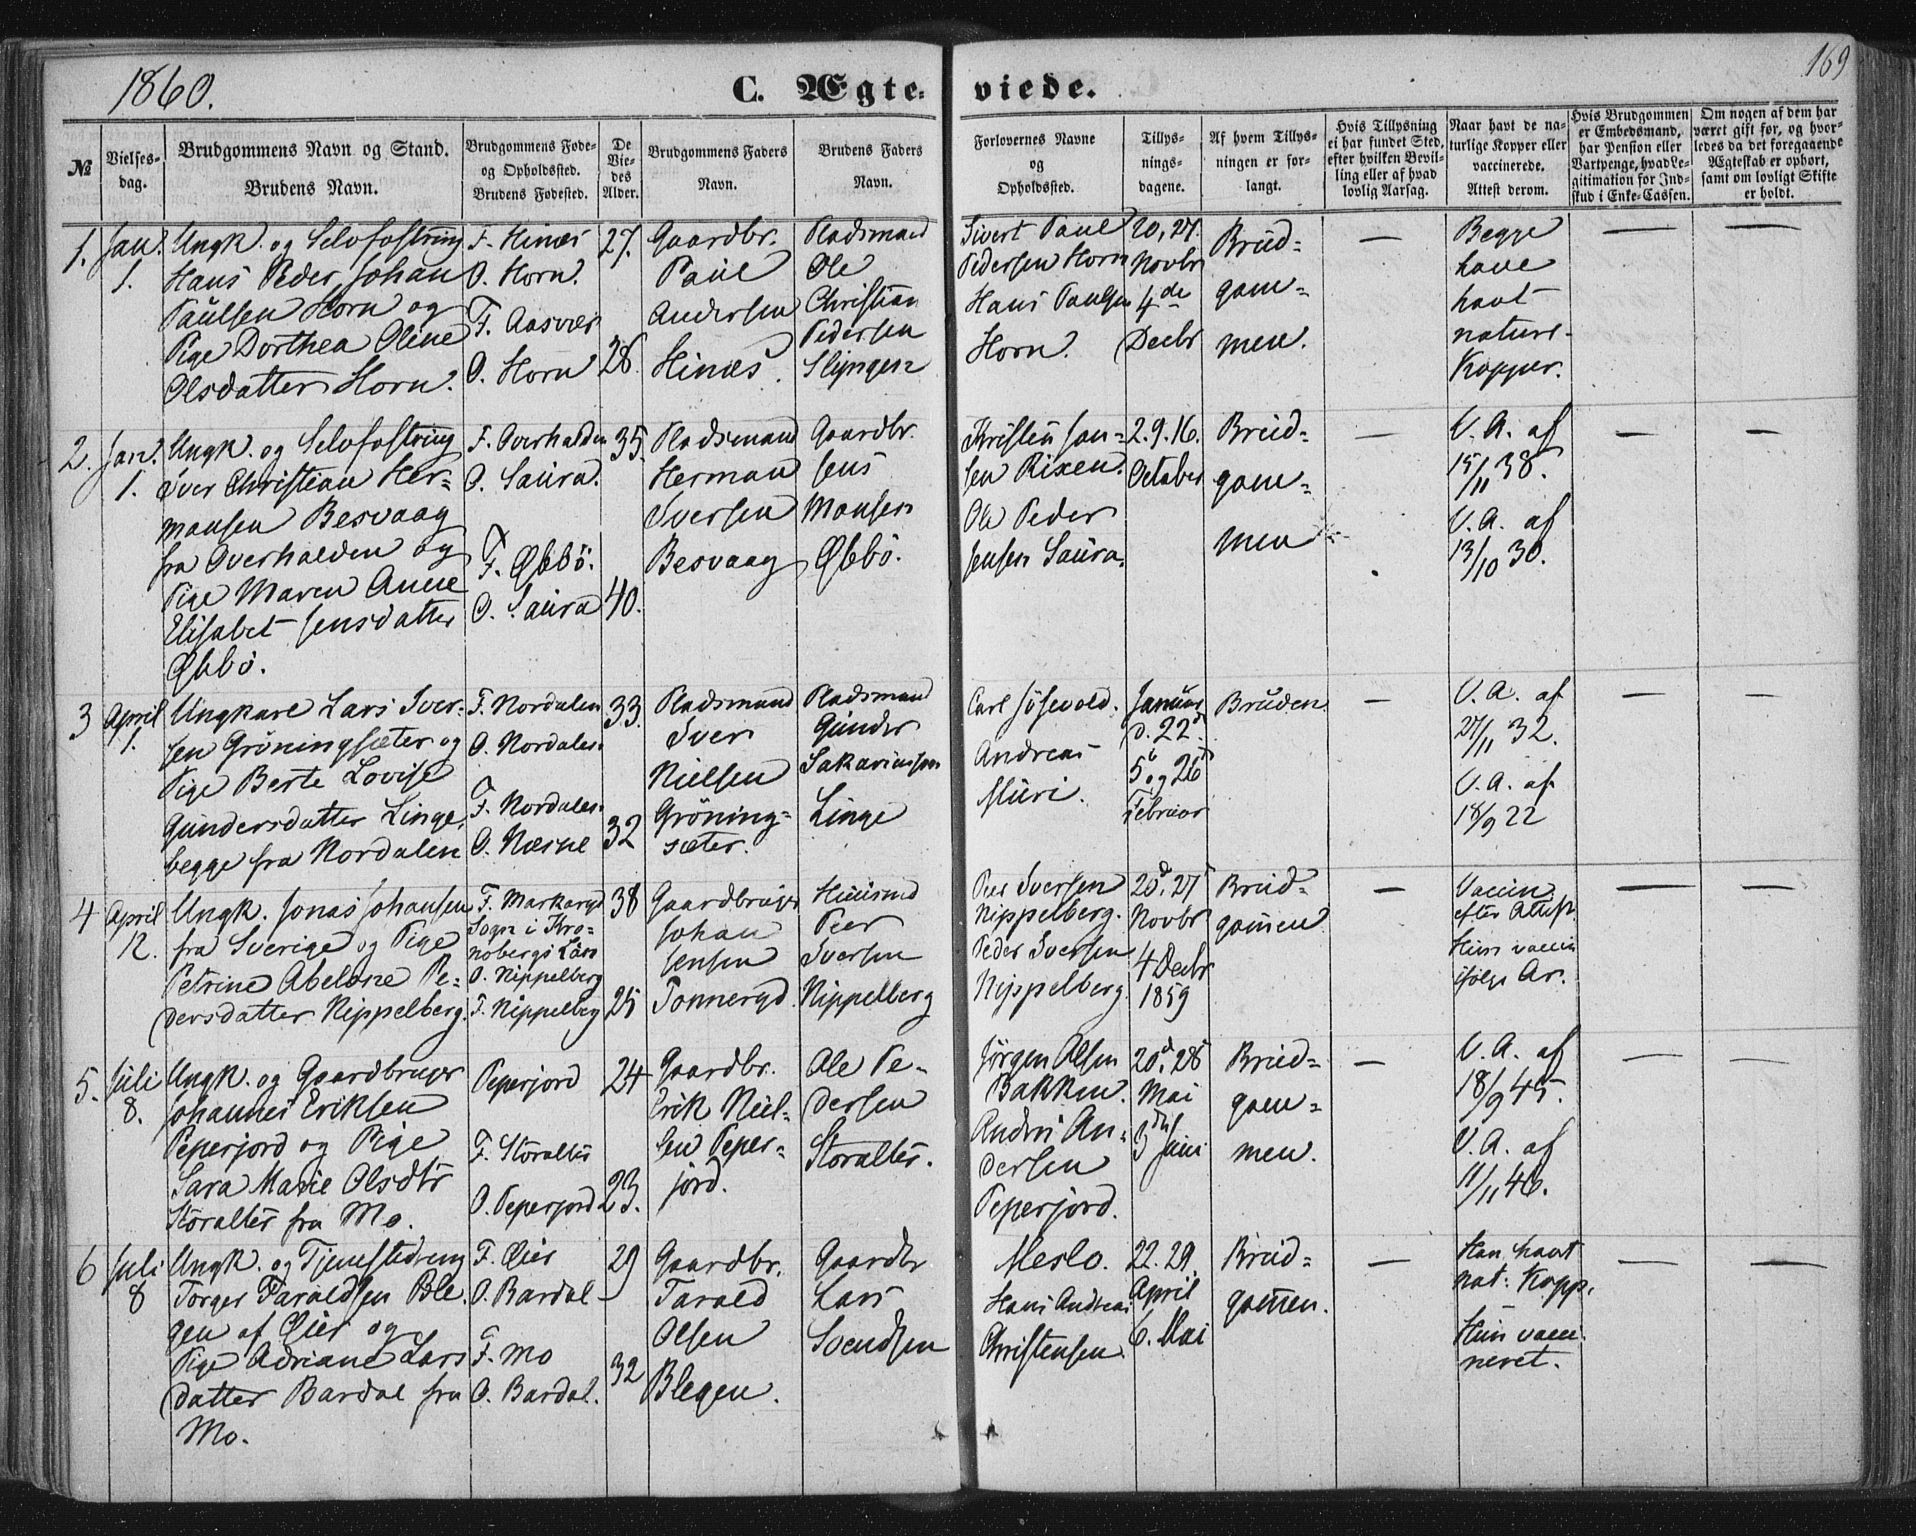 1860.
C. Ægte-
viede.
169
№
Vielses-
dag.
Brudgommens Navn og Stand.
Brudens Navn.
Brudgommens Føde-
og Opholdssted.
Brudens Fødested.
De
Vie-
des
Alder.
Brudgommens Faders
Navn.
Brudens Faders
Navn.
Forlovernes Navne
og
Opholdssted.
Tillys-
nings-
dagene.
Af hvem Tillys-
ningen er for-
langt.
Hvis Tillysning
ei har fundet Sted,
efter hvilken Bevil-
ling eller af hvad
lovlig Aarsag.
Naar havt de na-
turlige Kopper eller
vaccinerede.
Attest derom.
Hvis Brudgommen
er Embedsmand,
har Pension eller
Vartpenge, hvad Le-
gitimation for Ind-
skud i Enke-Cassen.
Om nogen af dem har
været gift før, og hvor-
ledes da det foregaaende
Ægteskab er ophørt,
samt om lovligt Skifte
er holdt.
1.
Jan.
1.
Ungk. og Selvfostring
Hans Peder Johan
Paulsen Horn og
Pige Dorthea Oline
Olsdatter Horn.
F. Hinæs
O. Horn.
F. Aasvær
O. Horn
27.
28.
Gaardbr.
Paul
Andersen
Hinæs.
Pladsmand
Ole
Christian
Pedersen
Slyngen
Sivert Paul
Pedersen Horn
Hans Paulsen
Horn.
20, 27
Novbr
4de
Decbr
Brud-
gom-
men.
—
Begge
have
havt
naturl.
Kopper.
—
—
2.
Jan.
1.
Ungk. og Selvfostring
Iver Christian Her-
mansen Besvaag
fra Overhalden og
Pige Maren Anne
Elisabet Jensdatter
Øbbö.
F. Overhalden
O. Saura.
F. Øbbö.
O. Saura
35.
40.
Pladsmand
Herman
Iversen
Besvaag
Gaardbr.
Jens
Monsen
Øbbö.
Kristen Jan-
sen Rixen.
Ole Peder
Jensen Saura.
2. 9. 16.
October
Brud-
gom-
men
—
V. A. af
15/11 38.
V. A. af
13/10 30.
—
—
3
April
1.
Ungkarl Lars Iver-
sen Gröningsæter og
Pige Berte Lovise
Gundersdatter Linge,
begge fra Nordalen
F. Nordalen
O. Nordalen
F. Nordalen
O. Næsne
33.
32
Pladsmand
Iver
Nielsen
Gröning-
sæter.
Pladsmand
Gunder
Sakariassen
Linge
Carl Jösevold.
Andreas
Muri.
Januar
d. 22d
5 og 26
Februar
Bruden
—
V. A. af
27/11 32.
V. A. af
18/9 22
—
—
4
April
12.
Ungk. Jonas Johansen
fra Sverige og Pige
Petrine Abelone Pe-
dersdatter Nippelberg.
F. Markaryd
Sogn i Kro-
nobergs Län
O. Nippelberg
F. Nippelberg
38
25
Gaardbruger
Johan
Jensen
Tonneryd.
Huusmd
Peer
Iversen
Nippelberg
Peer Iversen
Nippelberg.
Peder Iversen
Nippelberg.
20d, 27
Novbr
4 Decbr
1859
Brud-
gommen
—
Vaccin
efter Attest
Hun vaccin
ifölge Ar.
—
—
5.
Juli
8.
Ungk. og Gaardbruger
Johannes Eriksen
Peperjord og Pige
Sara Marie Olsdtr
Storalter fra Mo.
Peperjord
F. Storalter
O. Peperjord
24
23.
Gaardbr.
Erik Niel-
sen Peper-
jord.
Ole Pe-
dersen
Storalter.
Jörgen Olsen
Bakken.
Andri An-
dersen
Peperjord.
20d, 28
Mai
3die Juni
Brud-
gom-
men.
—
V. A. af
18/9 45.
V. A. af
11/11 46.
—
—
6
Juli
8
Ungk. og Tjenestedreng
Torger Taraldsen Ble-
gen af Qvies og
Pige Adriane Lars
datter Bardal fra
Mo.
F. Qvies
O. Bardal
F. Mo
O. Bardal.
29
32
Gaardbr.
Tarald
Olsen
Blegen.
Gaardbr
Lars
Svendsen
Meslo.
Hans Andreas
Christensen.
22. 29.
April
6. Mai
Brud-
gommen.
—
Han havt
nat. Kopp.
Hun vacci-
neret.
—
—